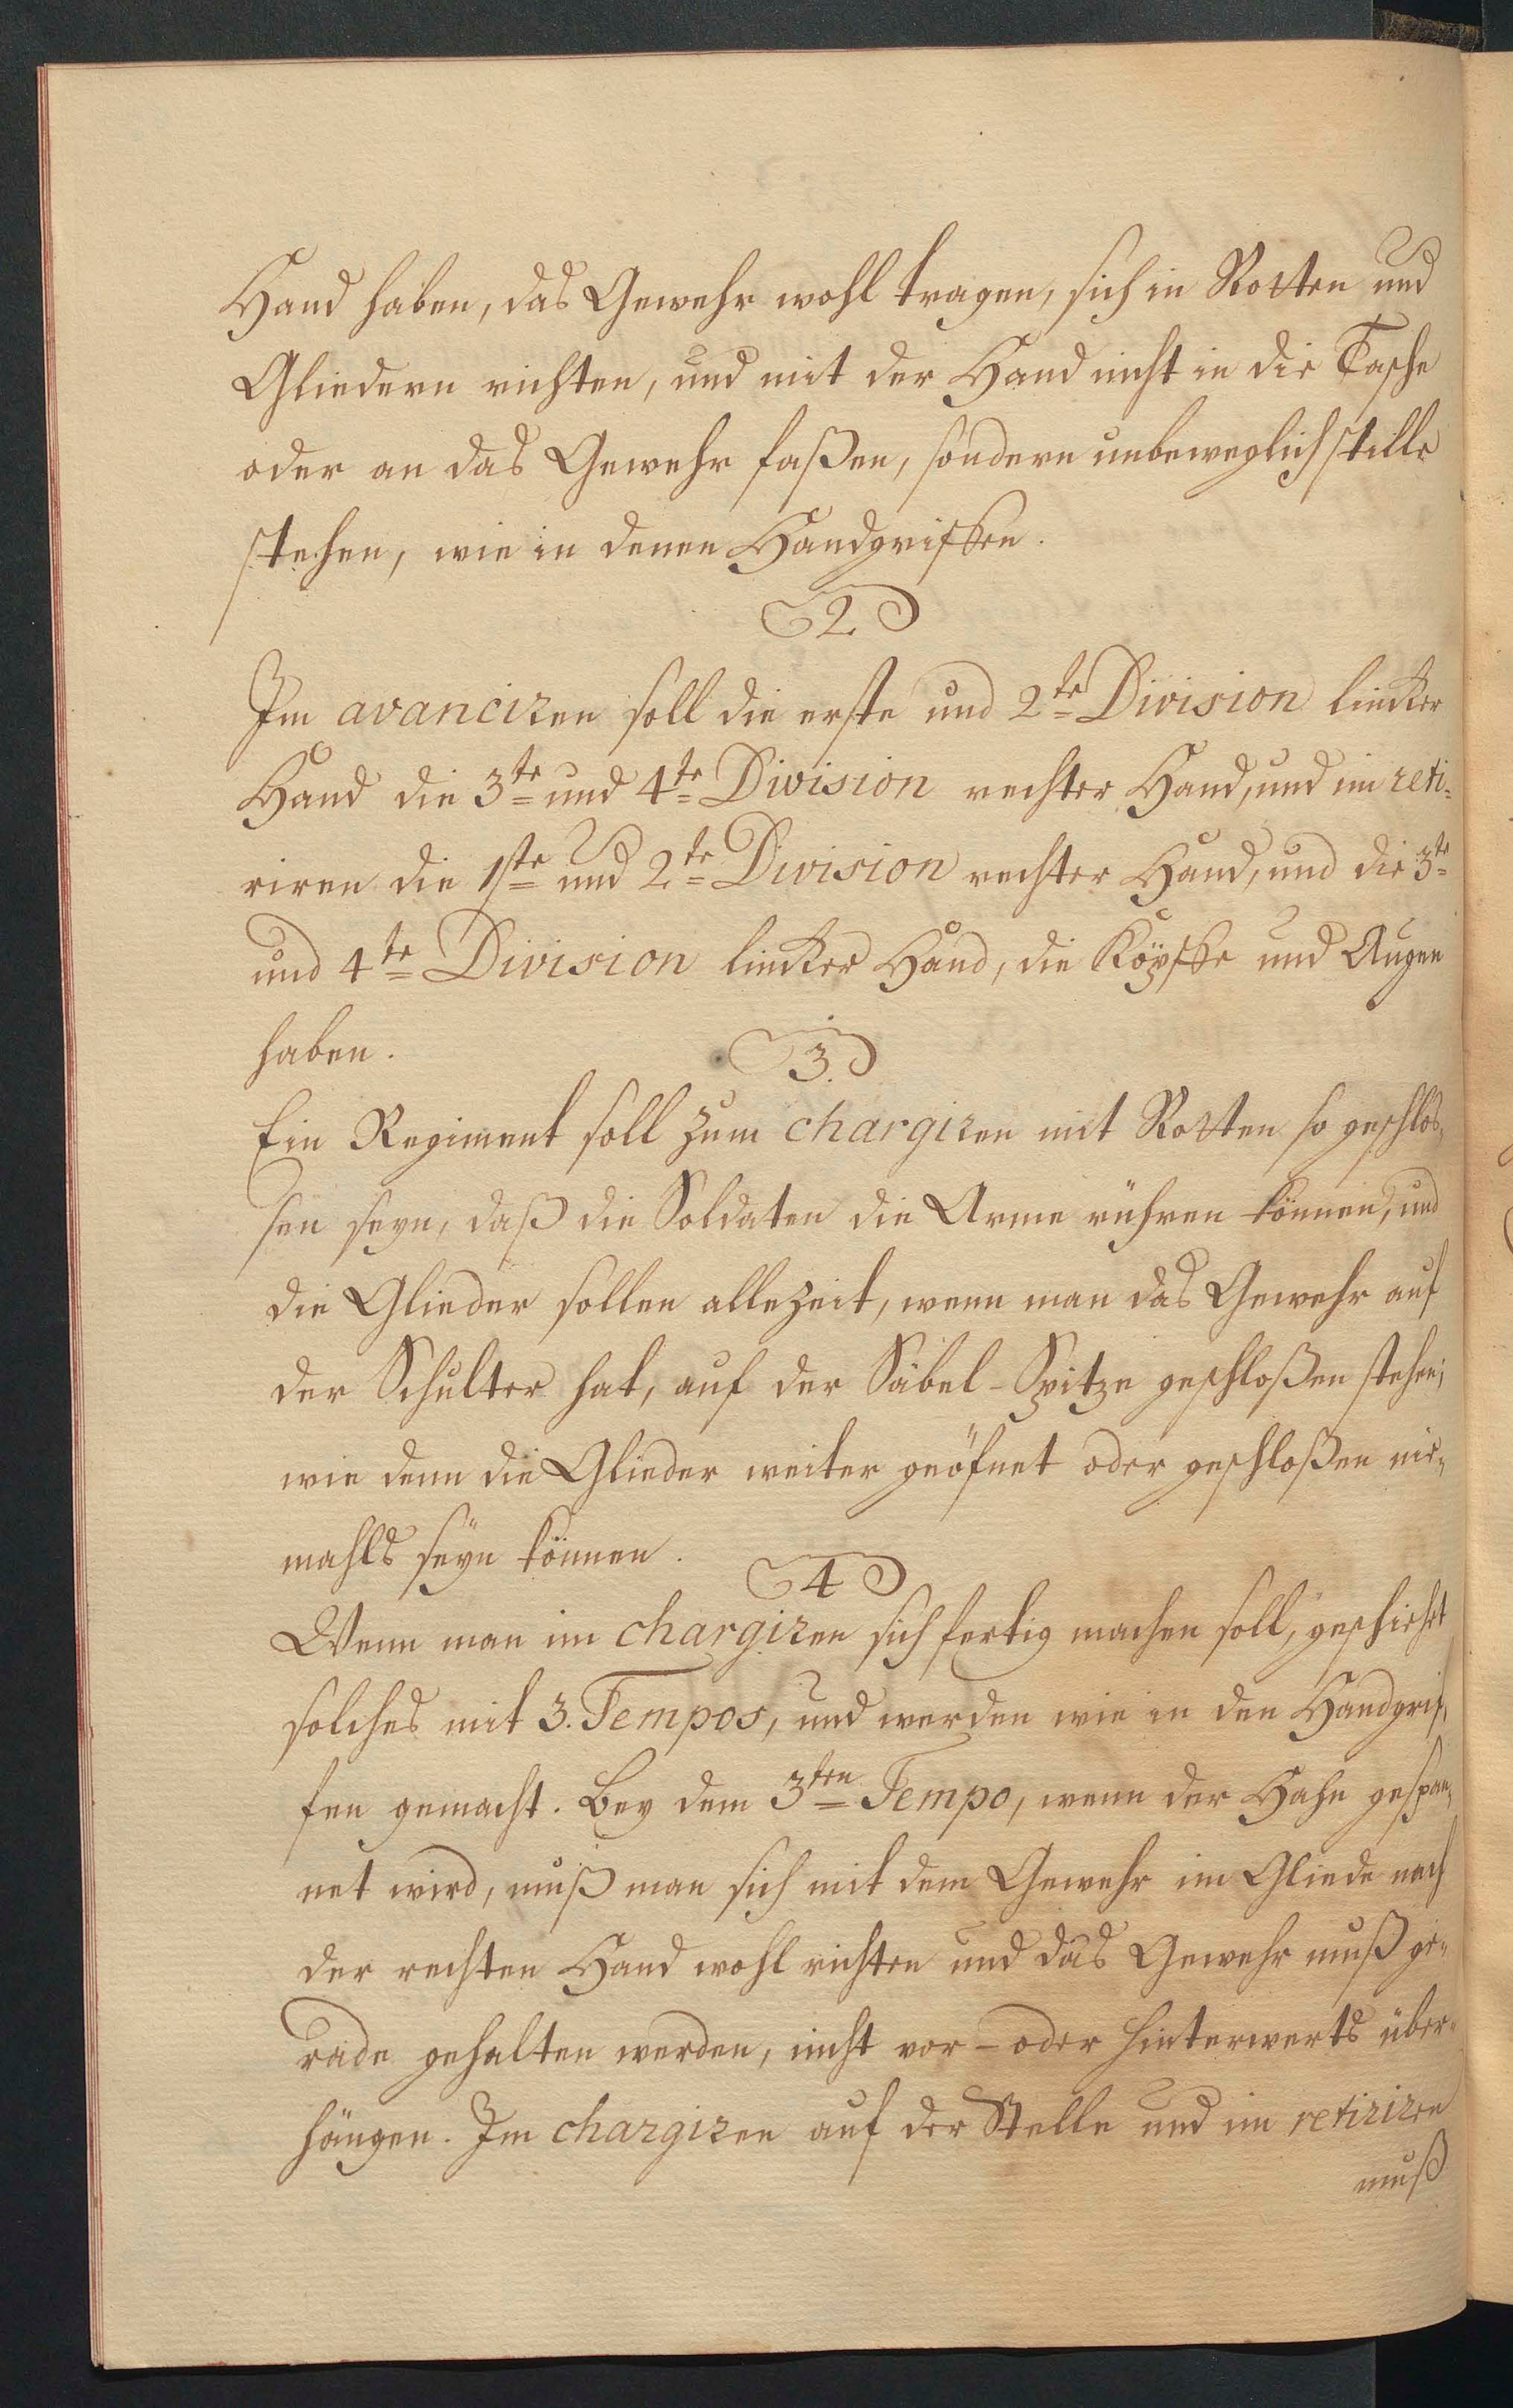 Hand haben, das Gewehr wohl tragen, sich in Rotten und
Gliedern richten, und mit der Hand nicht in die Tasche
oder an das Gewehr faßen, sondern unbeweglich stille
stehen, wie in denen Handgriffen.
2
Im avanciren soll die erste und 2te Division lincker
Hand die 3te und 4te Division rechter Hand, und im reti-
riren die 1ste und 2te Division rechter Hand, und die 3te
und 4te Division lincker Hand, die Köpffe und Augen
haben.
3.
Ein Regiment soll zum chargiren mit Rotten so geschlos-
sen seyn, daß die Soldaten die Arme rühren können, und
die Glieder sollen allezeit, wenn man das Gewehr auf
der Schulter hat, auf der Säbel-Spitze geschloßen stehen;
wie denn die Glieder weiter geöfnet oder geschloßen nie-
mahls seyn können.
4
Wenn man im chargiren sich fertig machen soll, geschieht
solches mit 3. Tempos, und werden wie in den Handgrif-
fen gemacht. Bey dem 3ten Tempo, wenn der Hahn gespan-
net wird, muß man sich mit dem Gewehr im Gliede nach
der rechten Hand wohl richten und das Gewehr muß ge-
rade gehalten werden, nicht vor- oder hinterwerts über-
hängen. Im chargiren auf der Stelle und im retiriren
muß